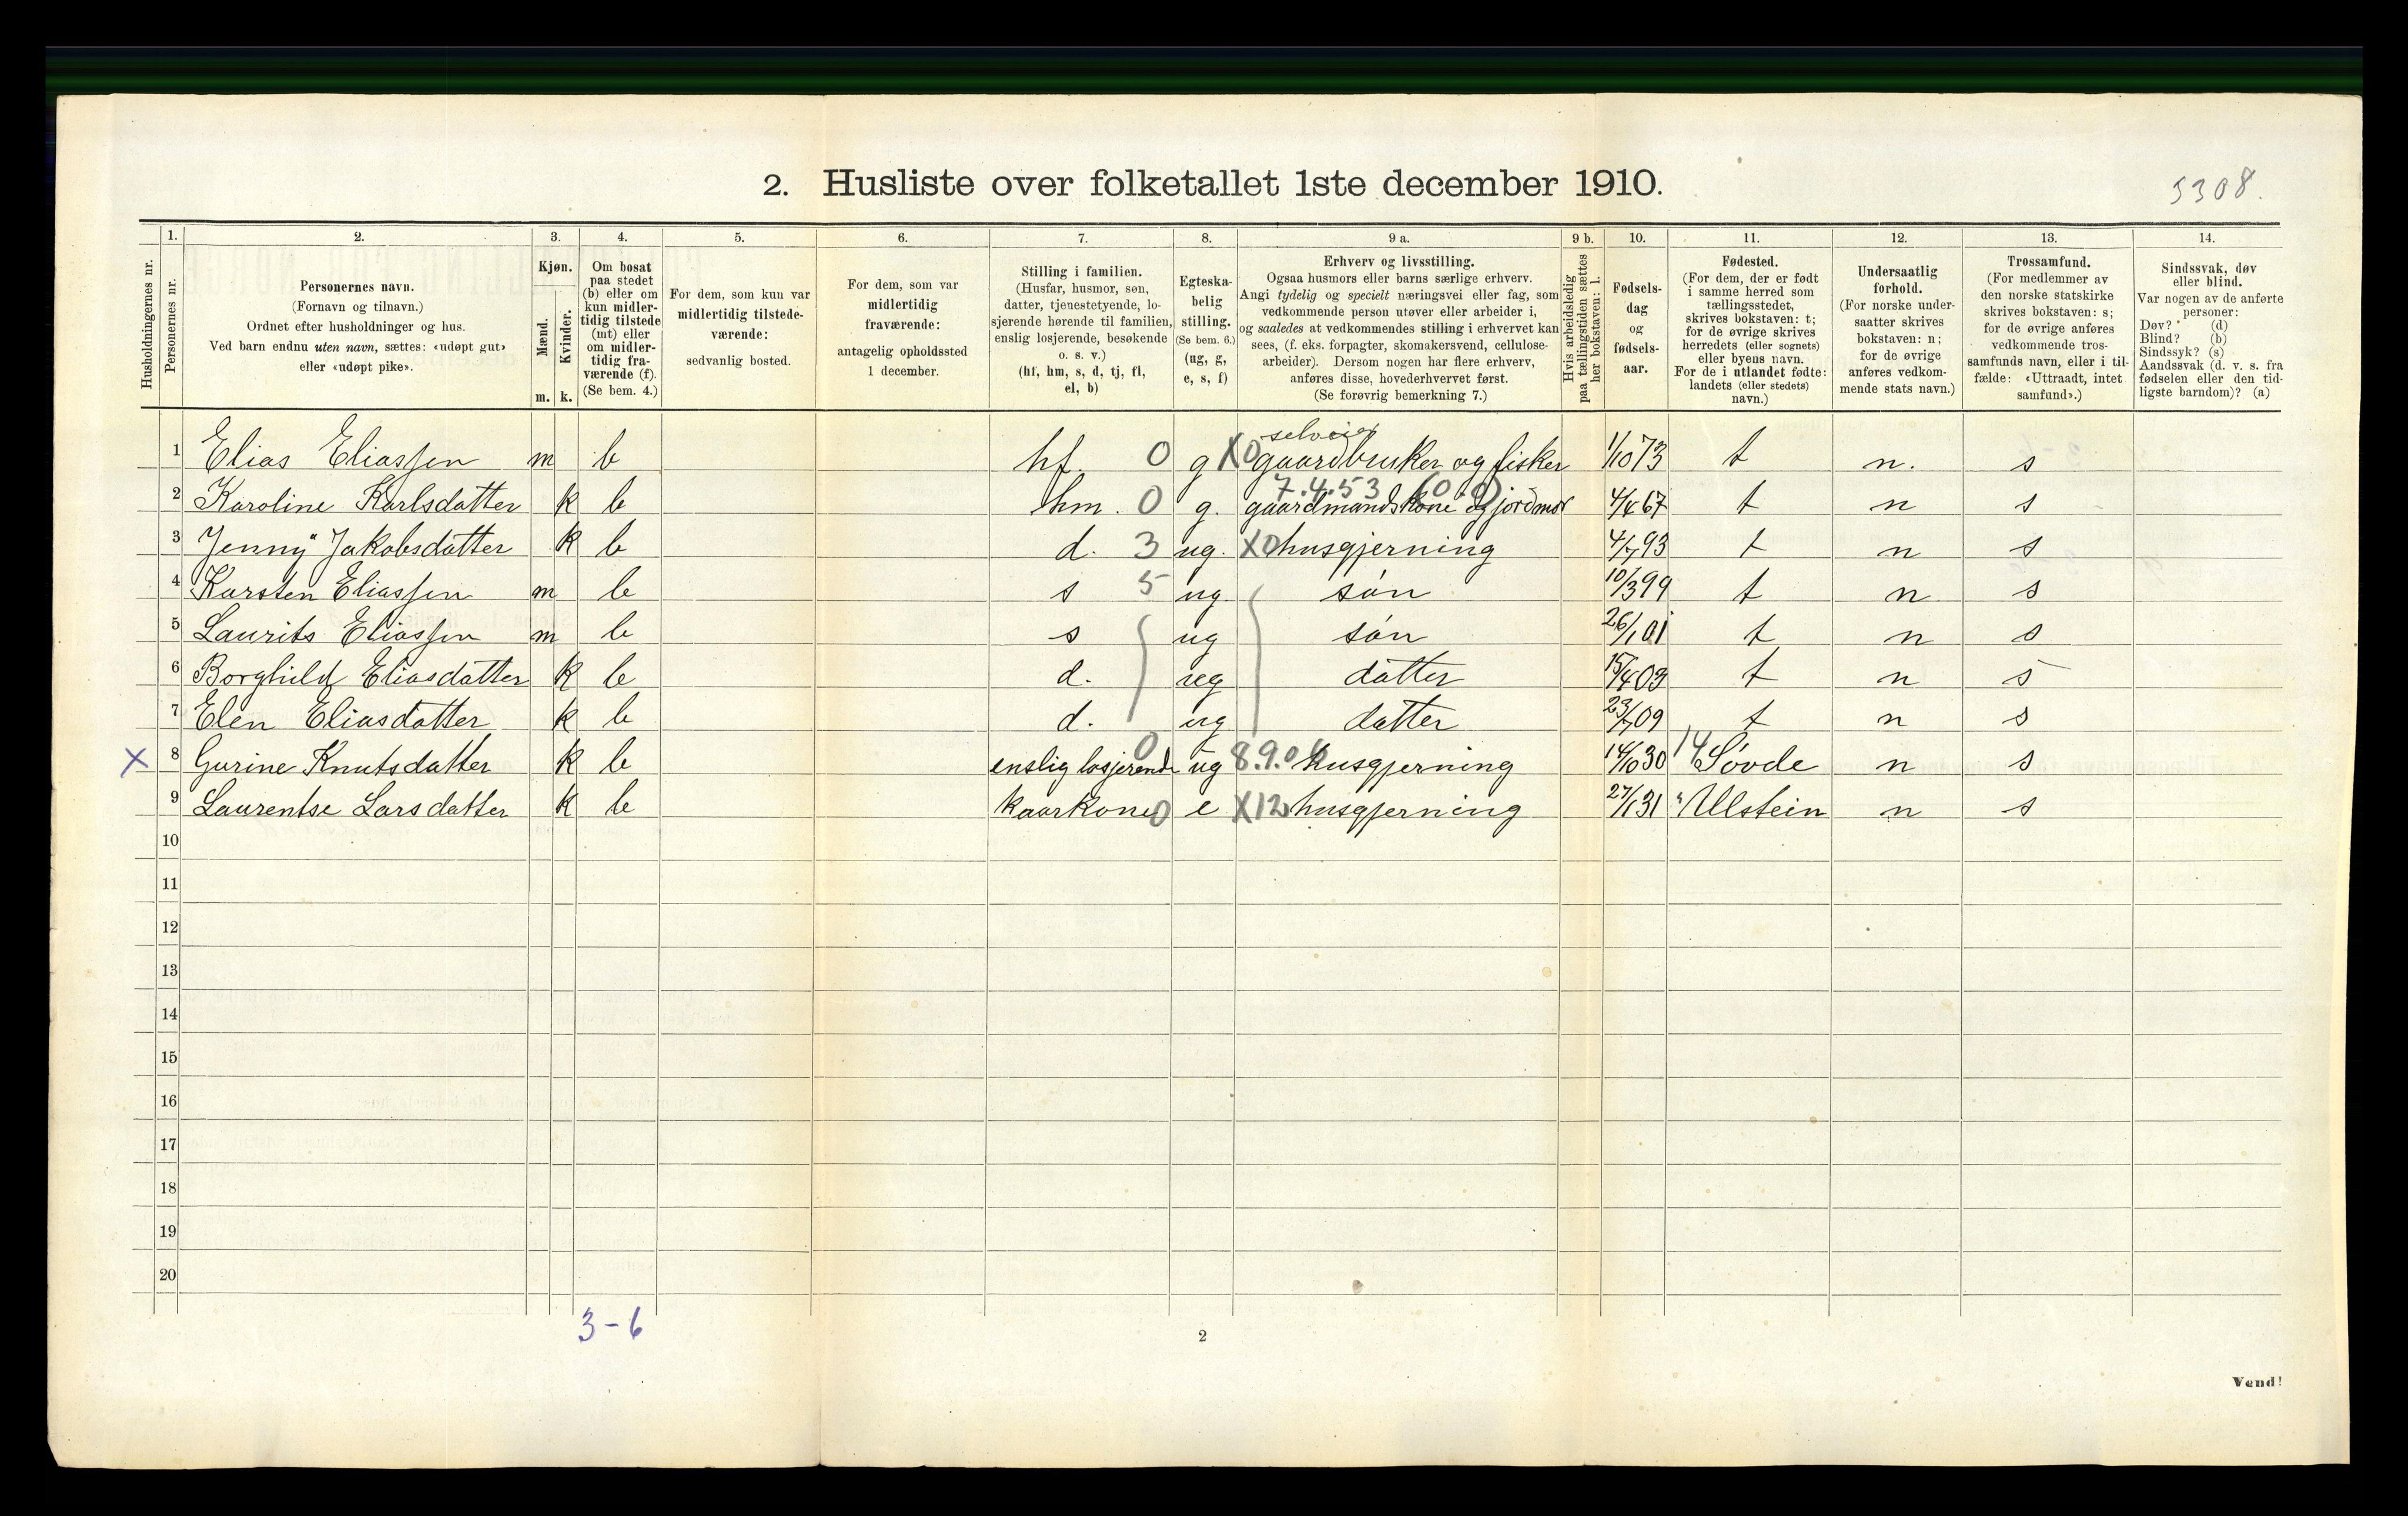 2. Husliste over folketallet 1ste december 1910.
5308.
Husholdningernes nr.
1.
Personernes nr.
2.
Personernes navn.
(Fornavn og tilnavn.)
Ordnet efter husholdninger og hus.
Ved barn endnu uten navn, sættes: «udøpt gut»
eller «udøpt pike».
3.
Kjøn.
Mænd.
Kvinder.
m. k.
4.
Om bosat
paa stedet
(b) eller om
kun midler-
tidig tilstede
(mt) eller
om midler-
tidig fra-
værende (f).
(Se bem. 4.)
5.
For dem, som kun var
midlertidig tilstede-
værende:
sedvanlig bosted.
6.
For dem, som var
midlertidig
fraværende:
antagelig opholdssted
1 december.
7.
Stilling i familien.
(Husfar, husmor, søn,
datter, tjenestetyende, lo-
sjerende hørende til familien,
enslig losjerende, besøkende
o. s. v.)
(hf, hm, s, d, tj, fl,
el, b)
8.
Egteska-
belig
stilling.
(Se bem. 6.)
(ug, g,
e, s, f)
9 a.
Erhverv og livsstilling.
Ogsaa husmors eller barns særlige erhverv.
Angi tydelig og specielt næringsvei eller fag, som
vedkommende person utøver eller arbeider i,
og saaledes at vedkommendes stilling i erhvervet kan
sees, (f. eks. forpagter, skomakersvend, cellulose-
arbeider). Dersom nogen har flere erhverv,
anføres disse, hovederhvervet først.
(Se forøvrig bemerkning 7.)
9 b.
Hvis arbeidsledig
paa tællingstiden sættes
her bokstaven: l.
10.
Fødsels-
dag
og
fødsels-
aar.
11.
Fødested.
(For dem, der er født
i samme herred som
tællingsstedet,
skrives bokstaven: t;
for de øvrige skrives
herredets (eller sognets)
eller byens navn.
For de i utlandet fødte:
landets (eller stedets)
navn.)
12.
Undersaatlig
forhold.
(For norske under-
saatter skrives
bokstaven: n;
for de øvrige
anføres vedkom-
mende stats navn.)
13.
Trossamfund.
(For medlemmer av
den norske statskirke
skrives bokstaven: s;
for de øvrige anføres
vedkommende tros-
samfunds navn, eller i til-
fælde: «Uttraadt, intet
samfund».)
14.
Sindssvak, døv
eller blind.
Var nogen av de anførte
personer:
Døv? (d)
Blind? (b)
Sindssyk? (s)
Aandssvak (d. v. s. fra
fødselen eller den tid-
ligste barndom)? (a)
selveier
1 Elias Eliassen m b hf. 0 g X0 gaardbruker og fisker 1/10 73 t n. s
7.4.53 (0 0)
2 Karoline Karlsdatter k b hm. 0 g. gaardmandskone og jordmor 4/4 67 t n s
3 Jenny Jakobsdatter k b d. 3 ug. X0 husgjerning 4/7 93 t n s
4 Karsten Eliassen m b s 5 ug søn 10/3 99 t n s
5 Laurits Eliassen m b s ug søn 26/1 01 t n s
6 Borghild Eliasdatter k b d. ug datter 15/4 03 t n s
7 Elen Eliasdatter k b d. ug datter 23/7 09 t n s
X 8 Gurine Knutsdatter k b enslig losjerende 0 ug 8.9.06 husgjerning 14/10 30 14 Søvde n s
9 Laurentse Larsdatter k b kaarkone 0 e X12 husgjerning 27/1 31 " Ulstein n s
10
11
12
13
14
15
16
17
18
19
20
3-6
2
Vend!